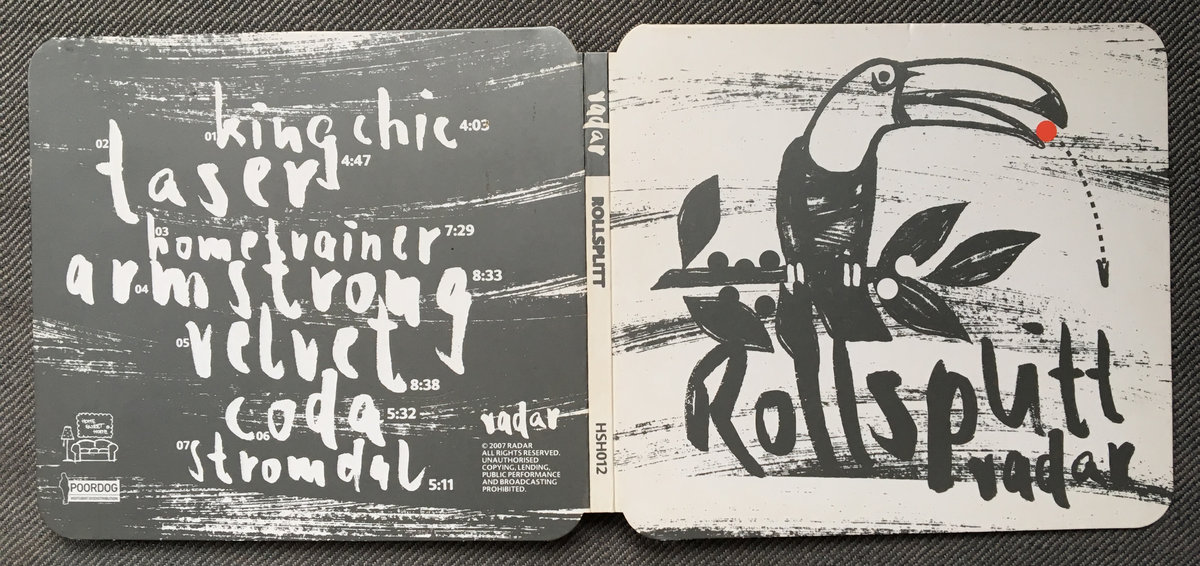 01 king chic 4:03
02 taser 4:47
03 hometrainer 7:29
04 armstrong 8:33
05 velvet 8:38
06 coda 5:32
07 stromdal 5:11
HOME
SWEET
HOME
POORDOG
radar
© 2007 RADAR
ALL RIGHTS RESERVED.
UNAUTHORISED
COPYING, LENDING,
PUBLIC PERFORMANCE
AND BROADCASTING
PROHIBITED.
radar ROLLSPLITT HSH012
Rollsplitt
radar